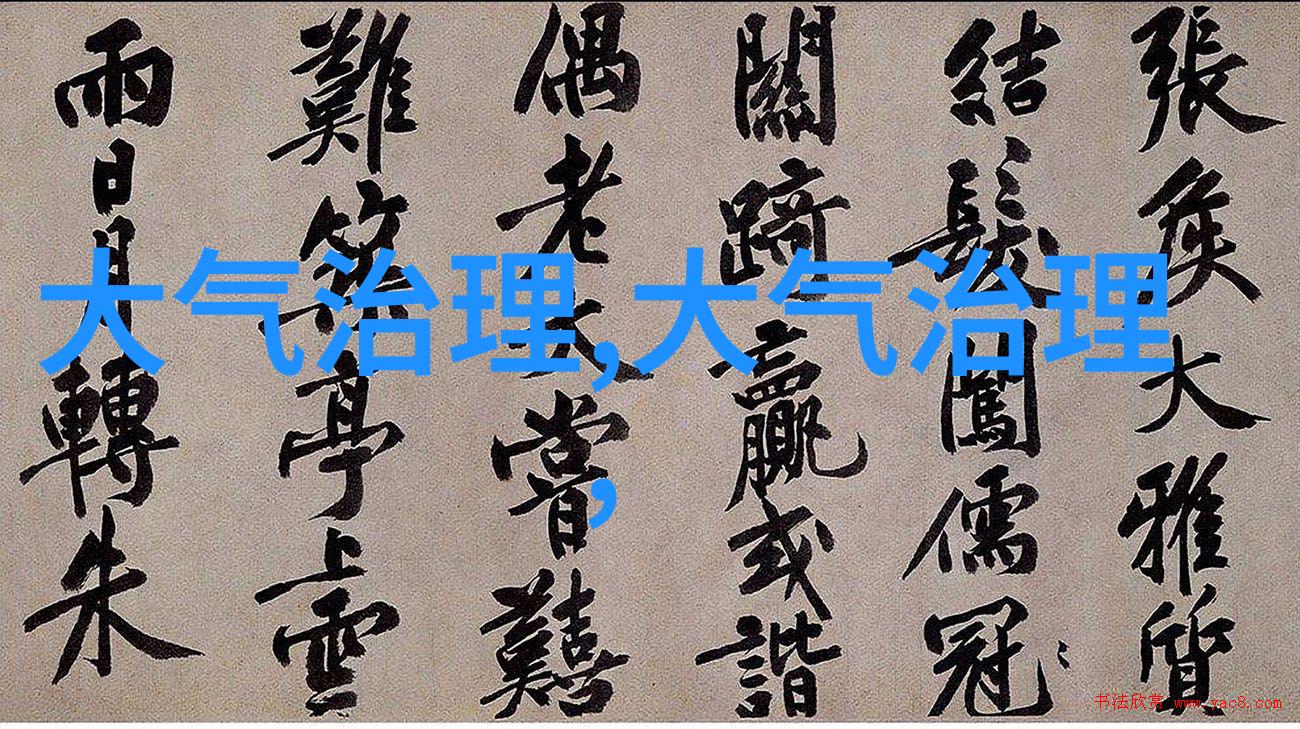 張矦大雅質
結髮闖儒冠
關踦贏或諧
偶老大嘗囏
難築亭上雲
雨日月轉朱
大气治理,大气治理
,
书法欣赏 www.yac8.com